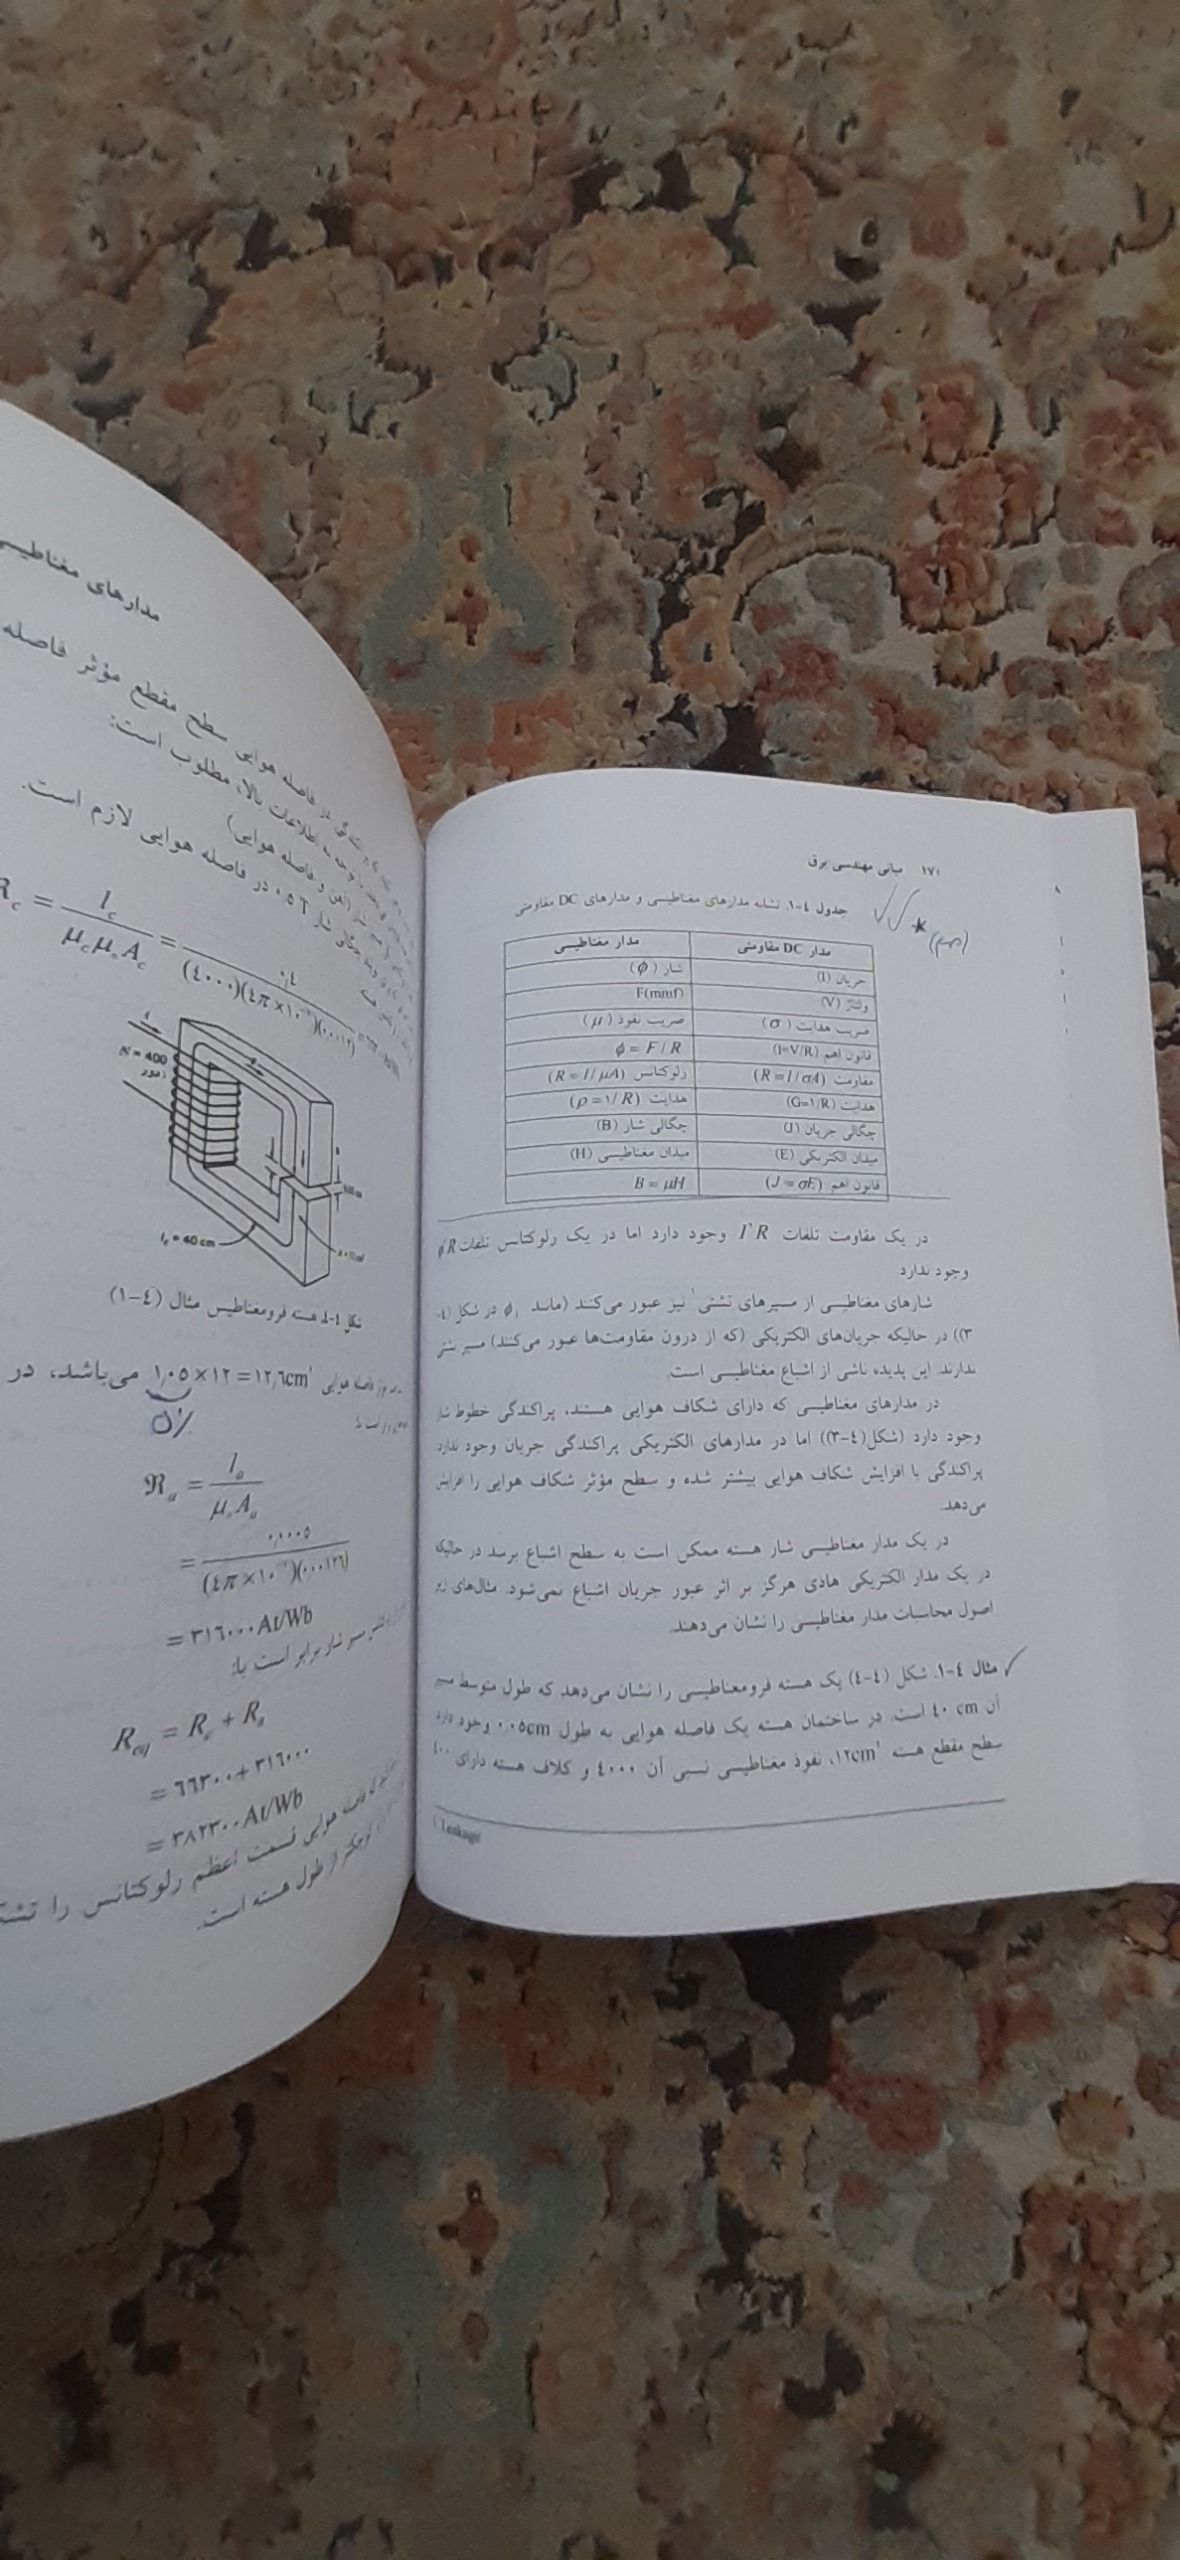 ۱۷۰ مبانی مهندسی برق
جدول ٤-۱ تشابه مدارهای مغناطیسی و مدارهای DC مقاومتی
مدار DC مقاومتی مدار مغناطیسی
جریان (I) شار (ϕ)
ولتاژ (V) F(mmf)
ضریب هدایت (σ) ضریب نفوذ (μ)
قانون اهم (I=V/R) ϕ = F / R
مقاومت (R = l / σA) رلوکتانس (R = l / μA)
هدایت (G=۱/R) هدایت (ρ = ۱/ R)
چگالی جریان (J) چگالی شار (B)
میدان الکتریکی (E) میدان مغناطیسی (H)
قانون اهم (J = σE) B = μH
در یک مقاومت تلفات I²R وجود دارد اما در یک رلوکتانس تلفات ϕ²R
وجود ندارد.
شارهای مغناطیسی از مسیرهای نشتی¹ نیز عبور می‌کند (مانند ϕ₁ در شکل (٤-
۳)) در حالیکه جریان‌های الکتریکی (که از درون مقاومت‌ها عبور می‌کنند) مسیر نشتی
ندارند. این پدیده ناشی از اشباع مغناطیسی است.
در مدارهای مغناطیسی که دارای شکاف هوایی هستند، پراکندگی خطوط شار
وجود دارد (شکل(٤-۳)) اما در مدارهای الکتریکی پراکندگی جریان وجود ندارد.
پراکندگی با افزایش شکاف هوایی بیشتر شده و سطح مؤثر شکاف هوایی را افزایش
می‌دهد.
در یک مدار مغناطیسی شار هسته ممکن است به سطح اشباع برسد در حالیکه
در یک مدار الکتریکی هادی هرگز بر اثر عبور جریان اشباع نمی‌شود. مثال‌های زیر
اصول محاسبات مدار مغناطیسی را نشان می‌دهند.
مثال ٤-۱. شکل (٤-٤) یک هسته فرومغناطیسی را نشان می‌دهد که طول متوسط مسیر
آن ٤۰ cm است. در ساختمان هسته یک فاصله هوایی به طول ۰.۰٥cm وجود دارد.
سطح مقطع هسته ۱۲cm²، نفوذ مغناطیسی نسبی آن ٤۰۰۰ و کلاف هسته دارای ٤۰۰
1 Leakage
مدارهای مغناطیسی
سطح مقطع مؤثر فاصله
در فاصله هوایی
اطلاعات بالا، مطلوب است:
(آهن و فاصله هوایی)
چگالی شار ۰.٥ T در فاصله هوایی لازم است.
R_c = l_c / μ_c μ_0 A_c = ۰٫٤ / (٤۰۰۰)(٤π×۱۰⁻⁷)(۰.۰۰۱۲)
N = 400
دور
l_c = 40 cm
شکل ٤-٤. هسته فرومغناطیس مثال (٤-۱)
فاصله هوایی ۱٫۰٥×۱۲=۱۲٫٦cm² می‌باشد، در
٥٪
ℜ_a = l_a / μ_0 A_a
= ۰٫۰۰۰٥ / (٤π×۱۰⁻⁷)(۰.۰۰۱۲٦)
= ۳۱٦۰۰۰ At/Wb
مسیر شار برابر است با:
R_eq = R_c + R_a
= ٦٦۳۰۰ + ۳۱٦۰۰۰
= ۳۸۲۳۰۰ At/Wb
فاصله هوایی قسمت اعظم رلوکتانس را
کوچکتر از طول هسته است.